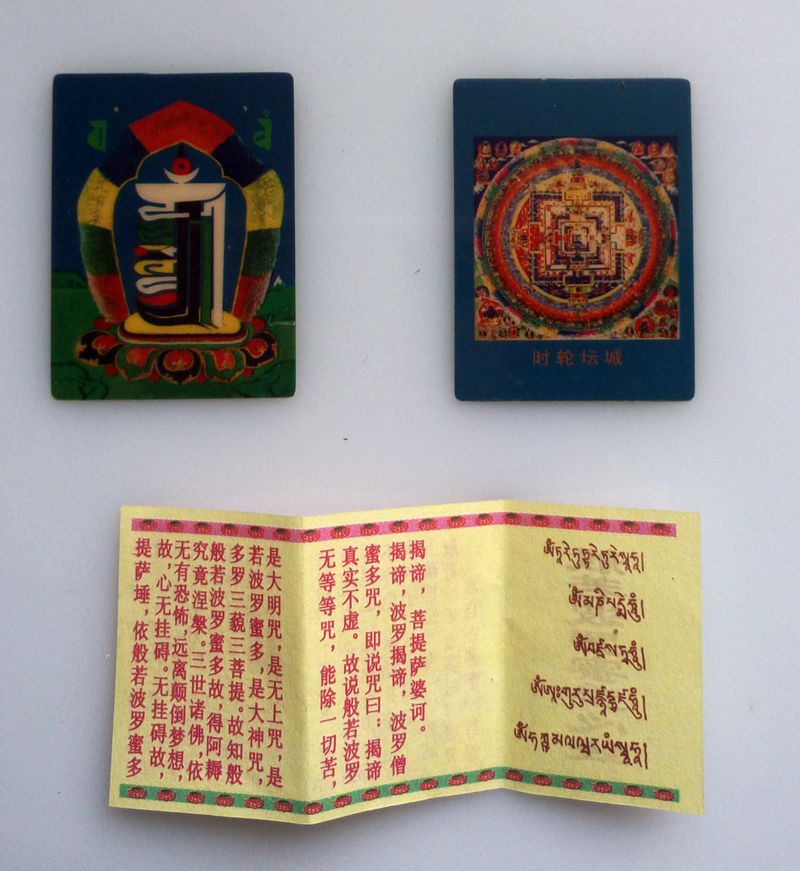 时轮坛城
提萨埵，依般若波罗蜜多
故，心无挂碍。无挂碍故，
无有恐怖，远离颠倒梦想，
究竟涅槃。三世诸佛，依
般若波罗蜜多故，得阿耨
多罗三藐三菩提。故知般
若波罗蜜多，是大神咒，
是大明咒，是无上咒，是
无等等咒，能除一切苦，
真实不虚。故说般若波罗
蜜多咒，即说咒曰：揭谛
揭谛，波罗揭谛，波罗僧
揭谛，菩提萨婆诃。
ཨོཾ་ཏཱ་རེ་ཏུཏྟཱ་རེ་ཏུ་རེ་སྭཱ་ཧཱ།
ཨོཾ་མ་ཎི་པདྨེ་ཧཱུྃ།
ཨོཾ་བཛྲ་སཏྭ་ཧཱུྃ།
ཨོཾ་ཨཱཿ་གུ་རུ་
ཨོཾ་ཧ་ཀྵ་མ་ལ་ཝ་ར་ཡཾ་སྭཱ་ཧཱ།